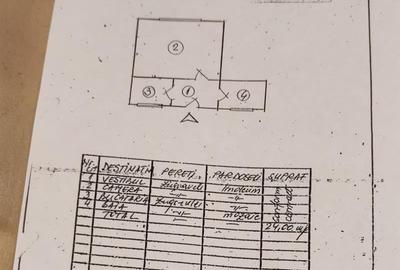 2
3
1
4
Nr. DESTINAȚIA PEREȚI PARDOSELI SUPRAF
1 VESTIBUL zugraveli linoleum Conform
2 CAMERA
3 BUCATARIA contract
4 BAIA mozaic
TOTAL 24,00 mp